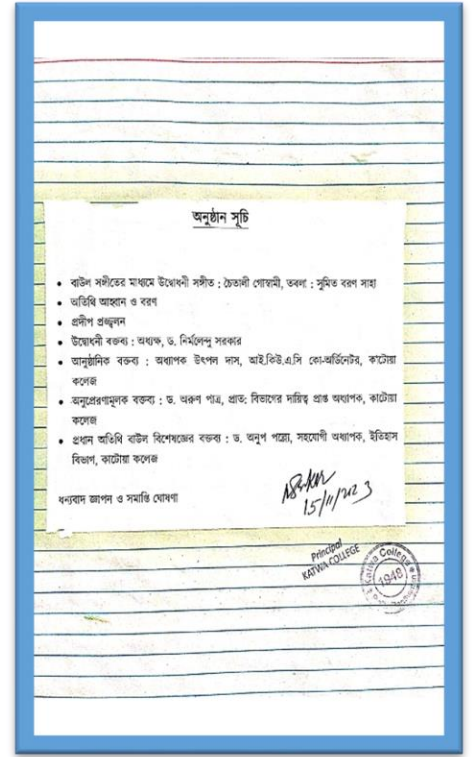 অনুষ্ঠান সূচি
• বাউল সঙ্গীতের মাধ্যমে উদ্বোধনী সঙ্গীত : চৈতালী গোস্বামী, তবলা : সুমিত বরণ সাহা
• অতিথি আহ্বান ও বরণ
• প্রদীপ প্রজ্জ্বলন
• উদ্বোধনী বক্তব্য : অধ্যক্ষ, ড. নির্মলেন্দু সরকার
• আনুষ্ঠানিক বক্তব্য : অধ্যাপক উৎপল দাস, আই.কিউ.এ.সি কো-অর্ডিনেটর, কাটোয়া
কলেজ
• অনুপ্রেরণামূলক বক্তব্য : ড. অরুণ পাত্র, প্রাত: বিভাগের দায়িত্ব প্রাপ্ত অধ্যাপক, কাটোয়া
কলেজ
• প্রধান অতিথি বাউল বিশেষজ্ঞের বক্তব্য : ড. অনুপ পল্লো, সহযোগী অধ্যাপক, ইতিহাস
বিভাগ, কাটোয়া কলেজ
ধন্যবাদ জ্ঞাপন ও সমাপ্তি ঘোষণা
15/11/2023
Principal
KATWA COLLEGE
Katwa College
1948